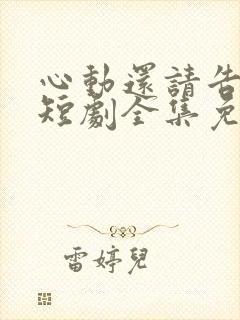 心動還請告
短劇全集免
雷婷兒